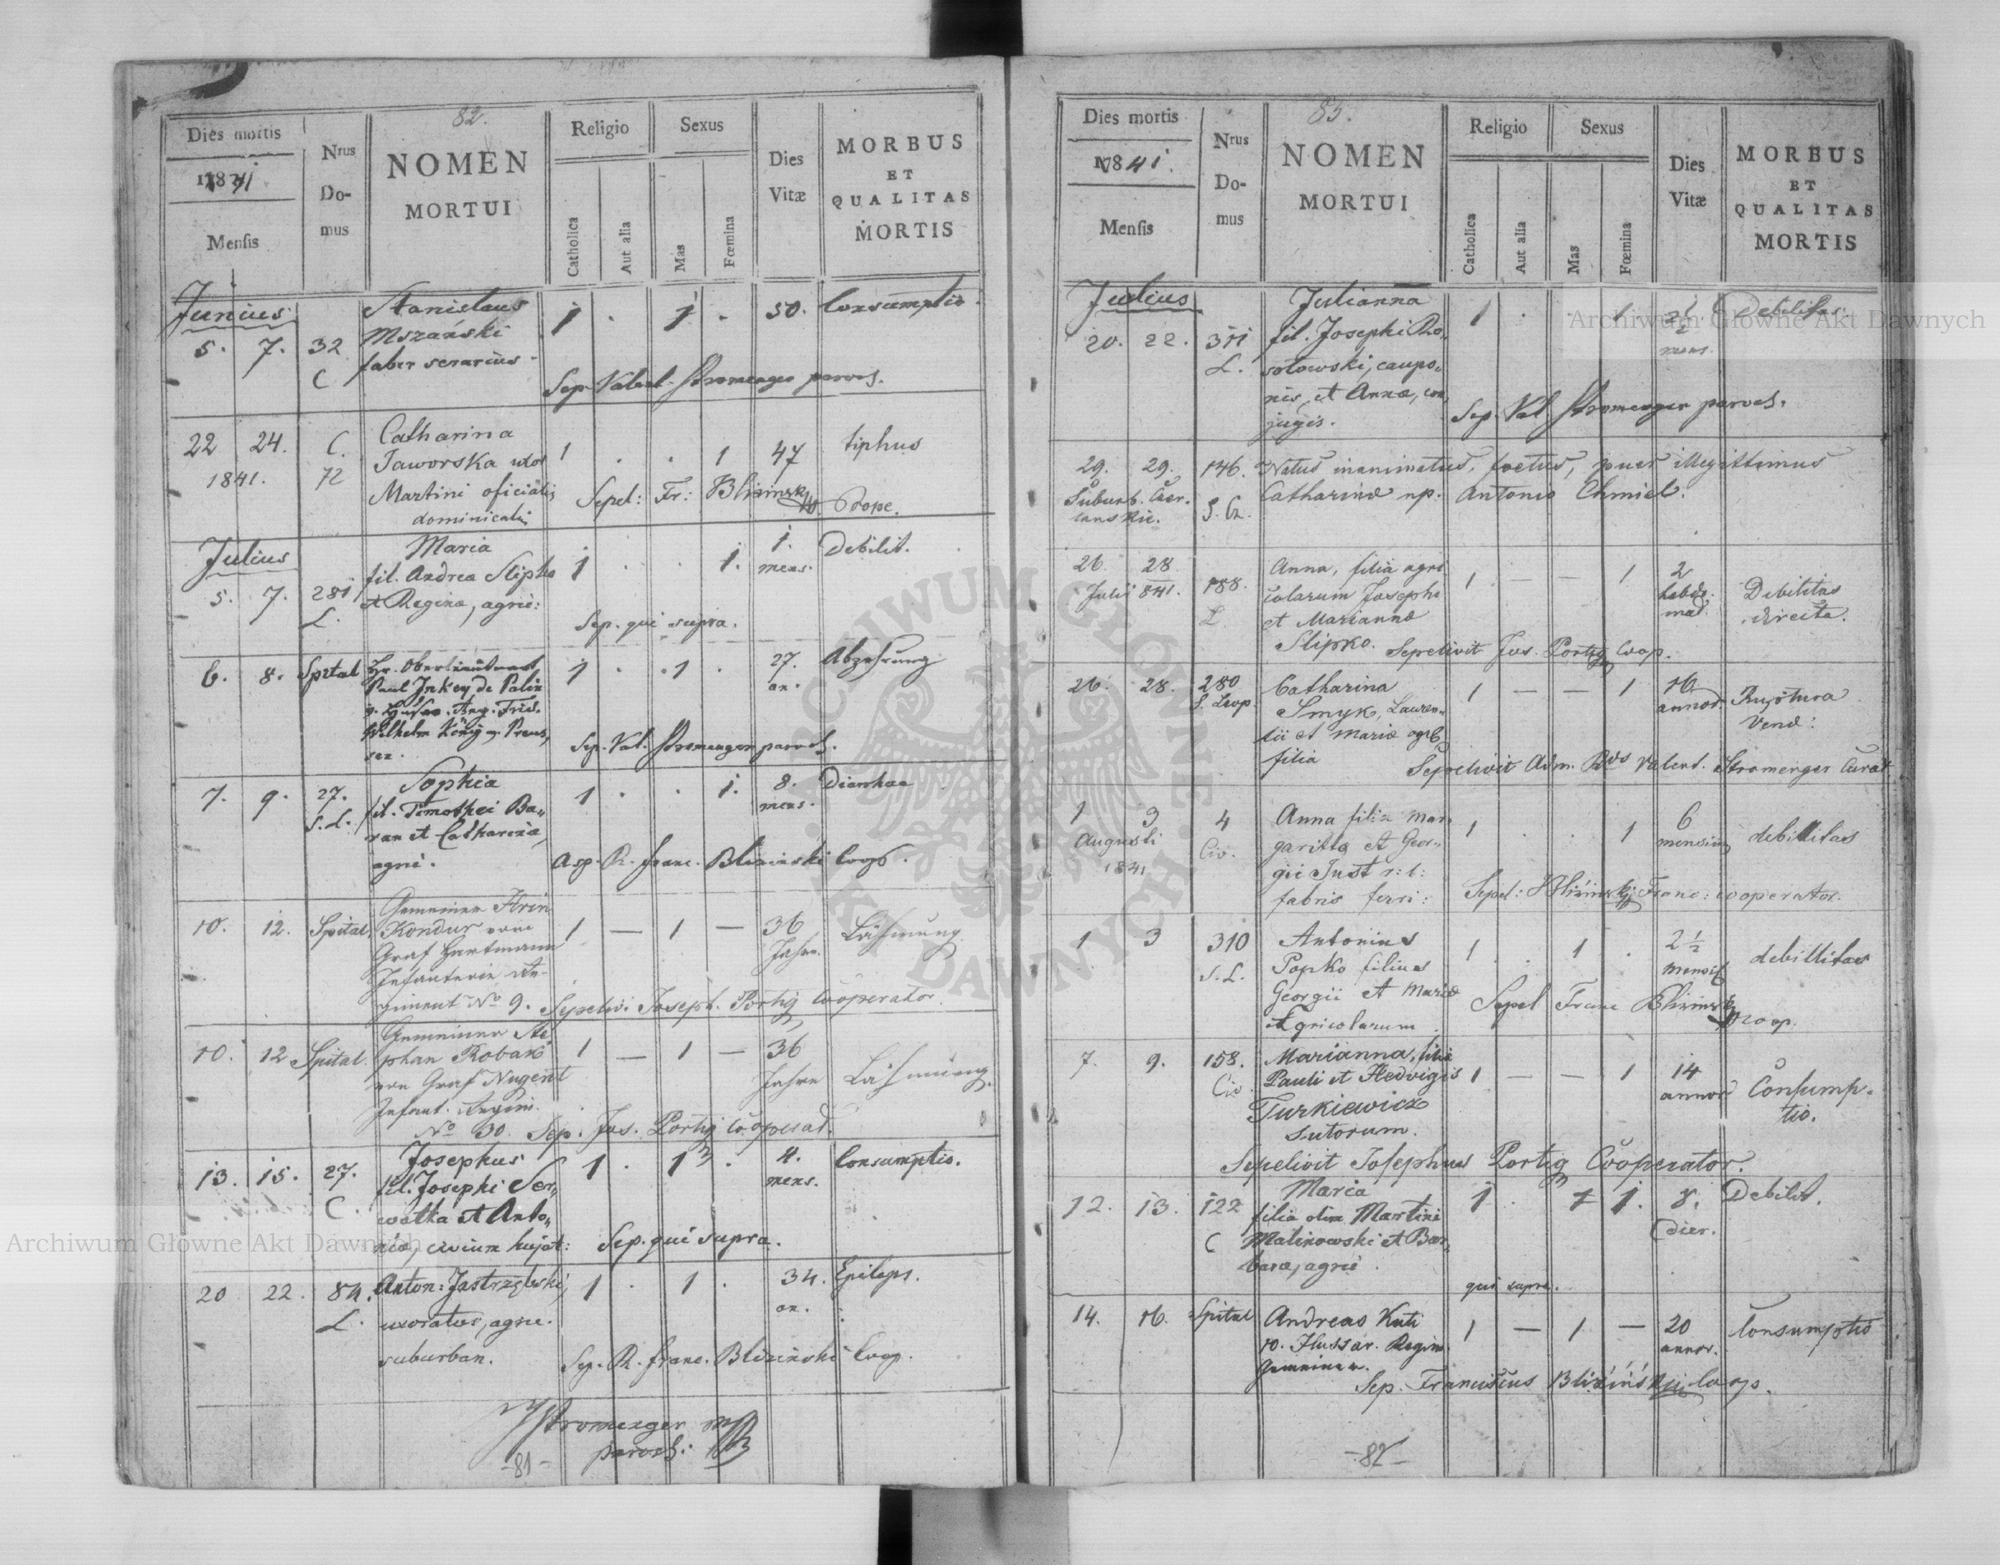 82.
Dies mortis
1841
Mensis
Nrus
Do-
mus
NOMEN
MORTUI
Religio
Catholica
Aut alia
Sexus
Mas
Fœmina
Dies
Vitæ
MORBUS
ET
QUALITAS
MORTIS
Junius
5. 7. 32 C
Stanislaus
Mszański
faber serarius
1 . 1 . 50. Consumptio.
Sep. Valent. Stromenger paroch.
22 24. C. 72
1841.
Catharina
Jaworska uxor
Martini oficialis
dominicalis
1 . . 1 47 tiphus
Sepel: Fr: Blizinski Coope.
Julius
5. 7. 281 L.
Maria
fil. Andrea Slipko
et Reginæ, agric:
1 . . 1. 1. mens. Debilit.
Sep. qui supra.
6. 8. Spital
Hr. Oberlieutenant
Paul Inkey de Palin
Wilhelm König v. Preus,
sen.
1 . 1 . 27. an. Abzehrung
Sep. Val. Stromenger paroch.
7. 9. 27. S. L.
Sophia
fil. Timothei Ba,,
ran et Catharina,
agric.
1 . . 1. 8. mens. Diarrhae
Asp. R. franc. Blizinski Coop.
10. 12. Spital.
Gemeiner
Kondur vom
Graf Hartmann
Infanterie Re-
giment No 9.
1 — 1 — 36 Jahre Lähmung
Sepeliv. Joseph. Portig Cooperator.
10. 12 Spital.
Gemeiner Ste
phan Robak
von Graf Nugent
Infant. Regim.
No 30.
1 — 1 — 36 Jahre Lähmung.
Sep. Jos. Portig Cooperat.
13. 15. 27. C.
Josephus
fil. Josephi Ser,,
watka et Anto,,
nia, civium hujat:
1 . 1 . 4. mens. Consumptio.
Sep. qui supra.
20 22. 84. L.
Anton: Jastrzębski,
uxoratus, agric.
suburban.
1 . 1 . 34. an. Epileps.
Sep. R. franc. Blizinski Coop.
Stromenger mp
paroch:
-81-
83.
Dies mortis
1841.
Mensis
Nrus
Do-
mus
NOMEN
MORTUI
Religio
Catholica
Aut alia
Sexus
Mas
Fœmina
Dies
Vitæ
MORBUS
ET
QUALITAS
MORTIS
Julius
20. 22. L.
Julianna
fil. Josephi Ro,,
sołowski, caupo,,
nis, et Annæ, con,
jugis.
1 . . 1. mens. Debilitas.
Sep. Val Stromenger paroch.
29. 29. 146.
Natus inanimatus, foetus, puer illegittimus
Catharinæ np. Antonio Chmiel.
26. 28.
Julii 841. 188. L
Anna, filia agri
colarum Josephi
et Mariannæ
Slipko.
1 — — 1 2 hebdo mad. Debilitas directa.
Sepelivit Jos. Portig Coop.
26. 28. 280 S. Leop.
Catharina
Smyk, Lauren,,
tii et Mariæ agric.
filia
1 — — 1 16 annor Ruptura Venæ:
Sepelivit Adm. Rdus Valent. Stromenger Curat
1 3 4 Civ.
Augusti
1841
Anna filia Mar
garitta et Geor,,
gii Just r: l:
fabris ferri:
1 . . 1 6 mensium debillitas
Sepel: Blizinski Franc: cooperator.
1 3 310 S. L.
Antonius
Popko filius
Georgii et Mariæ
Agricolarum
1 . 1 . 2 ½ mensis debillitas
Sepel Franc Blizinski Coop.
7. 9. 158. Civ
Marianna, filia
Pauli et Hedvigis
Turkiewicz
sutorum.
1 — — 1 14 annor Consump-
tio.
Sepelivit Josephus Portig Cooperator.
12. 13. 122 C
Maria
filia olim Martini
Malinowski et Bar,,
bara, agric.
1 . 1 1. 8. dier. Debilit.
qui supra.
14. 16. Spital
Andreas Kuti
10. Hussar. Regim
Gemeiner.
1 — 1 — 20 annor. Consumptio
Sep. Franciscus Bliziński Coop.
-82-
ARCHIWUM GŁÓWNE AKT DAWNYCH
Archiwum Główne Akt Dawnych
Archiwum Główne Akt Dawnych